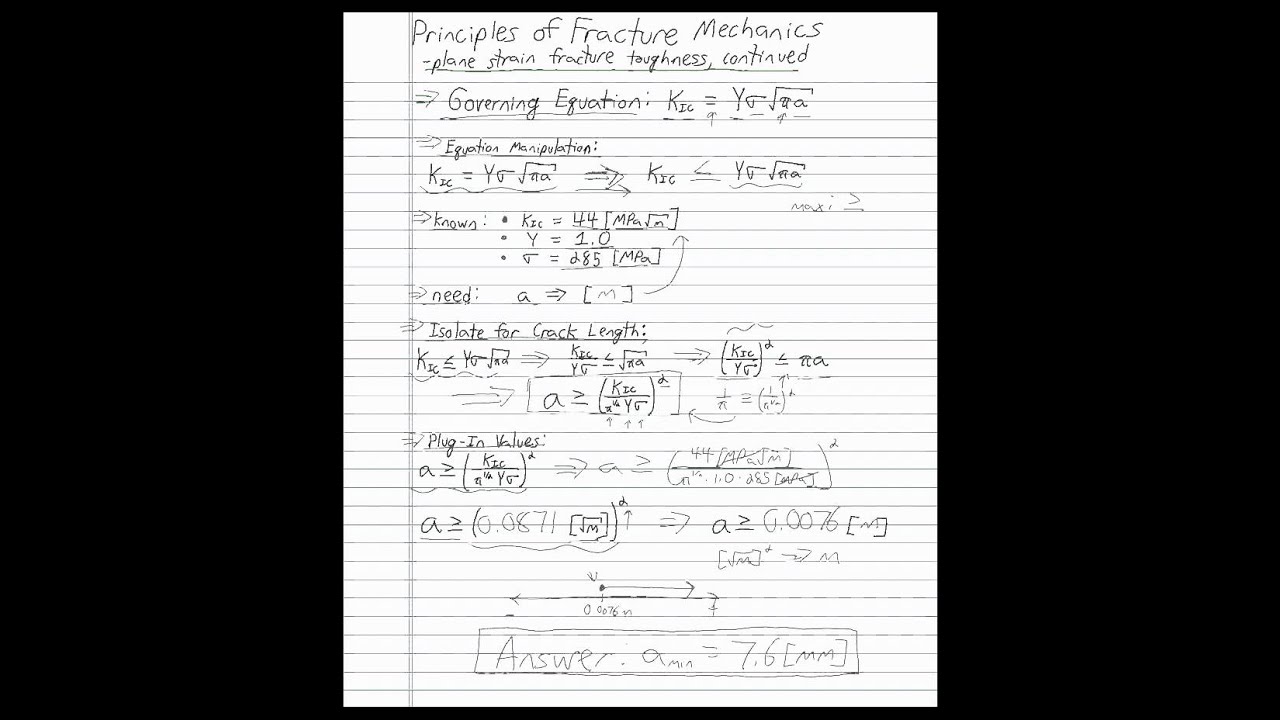 Principles of Fracture Mechanics
-plane strain fracture toughness, continued
⇒ Governing Equation: K_IC = Yσ√πa
↑ ↑
⇒ Equation Manipulation:
K_IC = Yσ√πa ⇒ K_IC ≤ Yσ√πa
maxi ≥
⇒ known: • K_IC = 44 [MPa√m]
• Y = 1.0
• σ = 285 [MPa]
⇒ need: a ⇒ [m]
⇒ Isolate for Crack Length:
K_IC ≤ Yσ√πa ⇒ K_IC/Yσ ≤ √πa ⇒ (K_IC/Yσ)² ≤ πa
⇒ a ≥ (K_IC/π^½ Yσ)² 1/π ≡ (1/π^½)²
⇒ Plug-In Values:
a ≥ (K_IC/π^½ Yσ)² ⇒ a ≥ (44 [MPa√m]/π^½ · 1.0 · 285 [MPa])²
a ≥ (0.0871 [√m])² ↑ ⇒ a ≥ 0.0076 [m]
[√m]² ⇒ m
0.0076 m
Answer: a_min = 7.6 [mm]